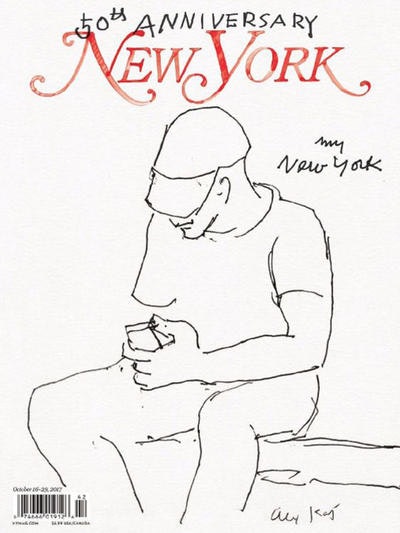 50th ANNIVERSARY
NEW YORK
my
New York
October 16-29, 2017
42
NYMAG.COM
$6.99 USA/CANADA
Alex Katz